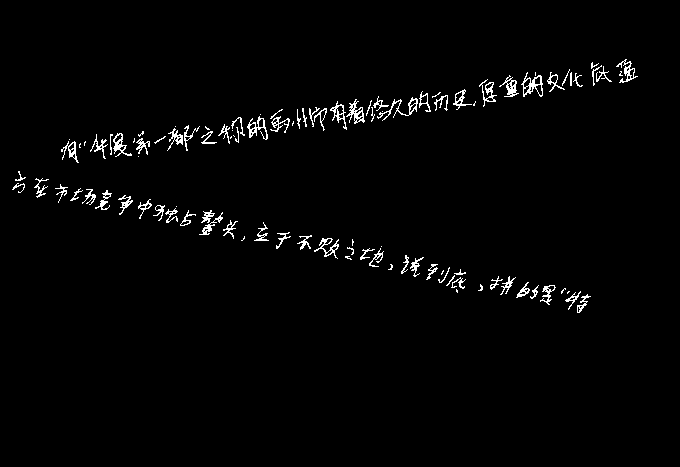 有"华夏第一都"之称的禹州市有着悠久的历史,厚重的文化底蕴
方在市场竞争中独占鳌头,立于不败之地,说到底,拼的是"特